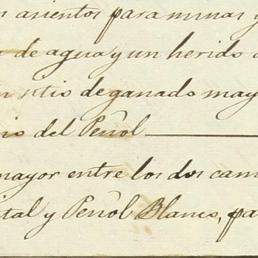 asientos para minas y
de agua y un herido d
sitio de ganado may
io del Peñol
mayor entre los dos cam
ital y Peñol Blanco, pa